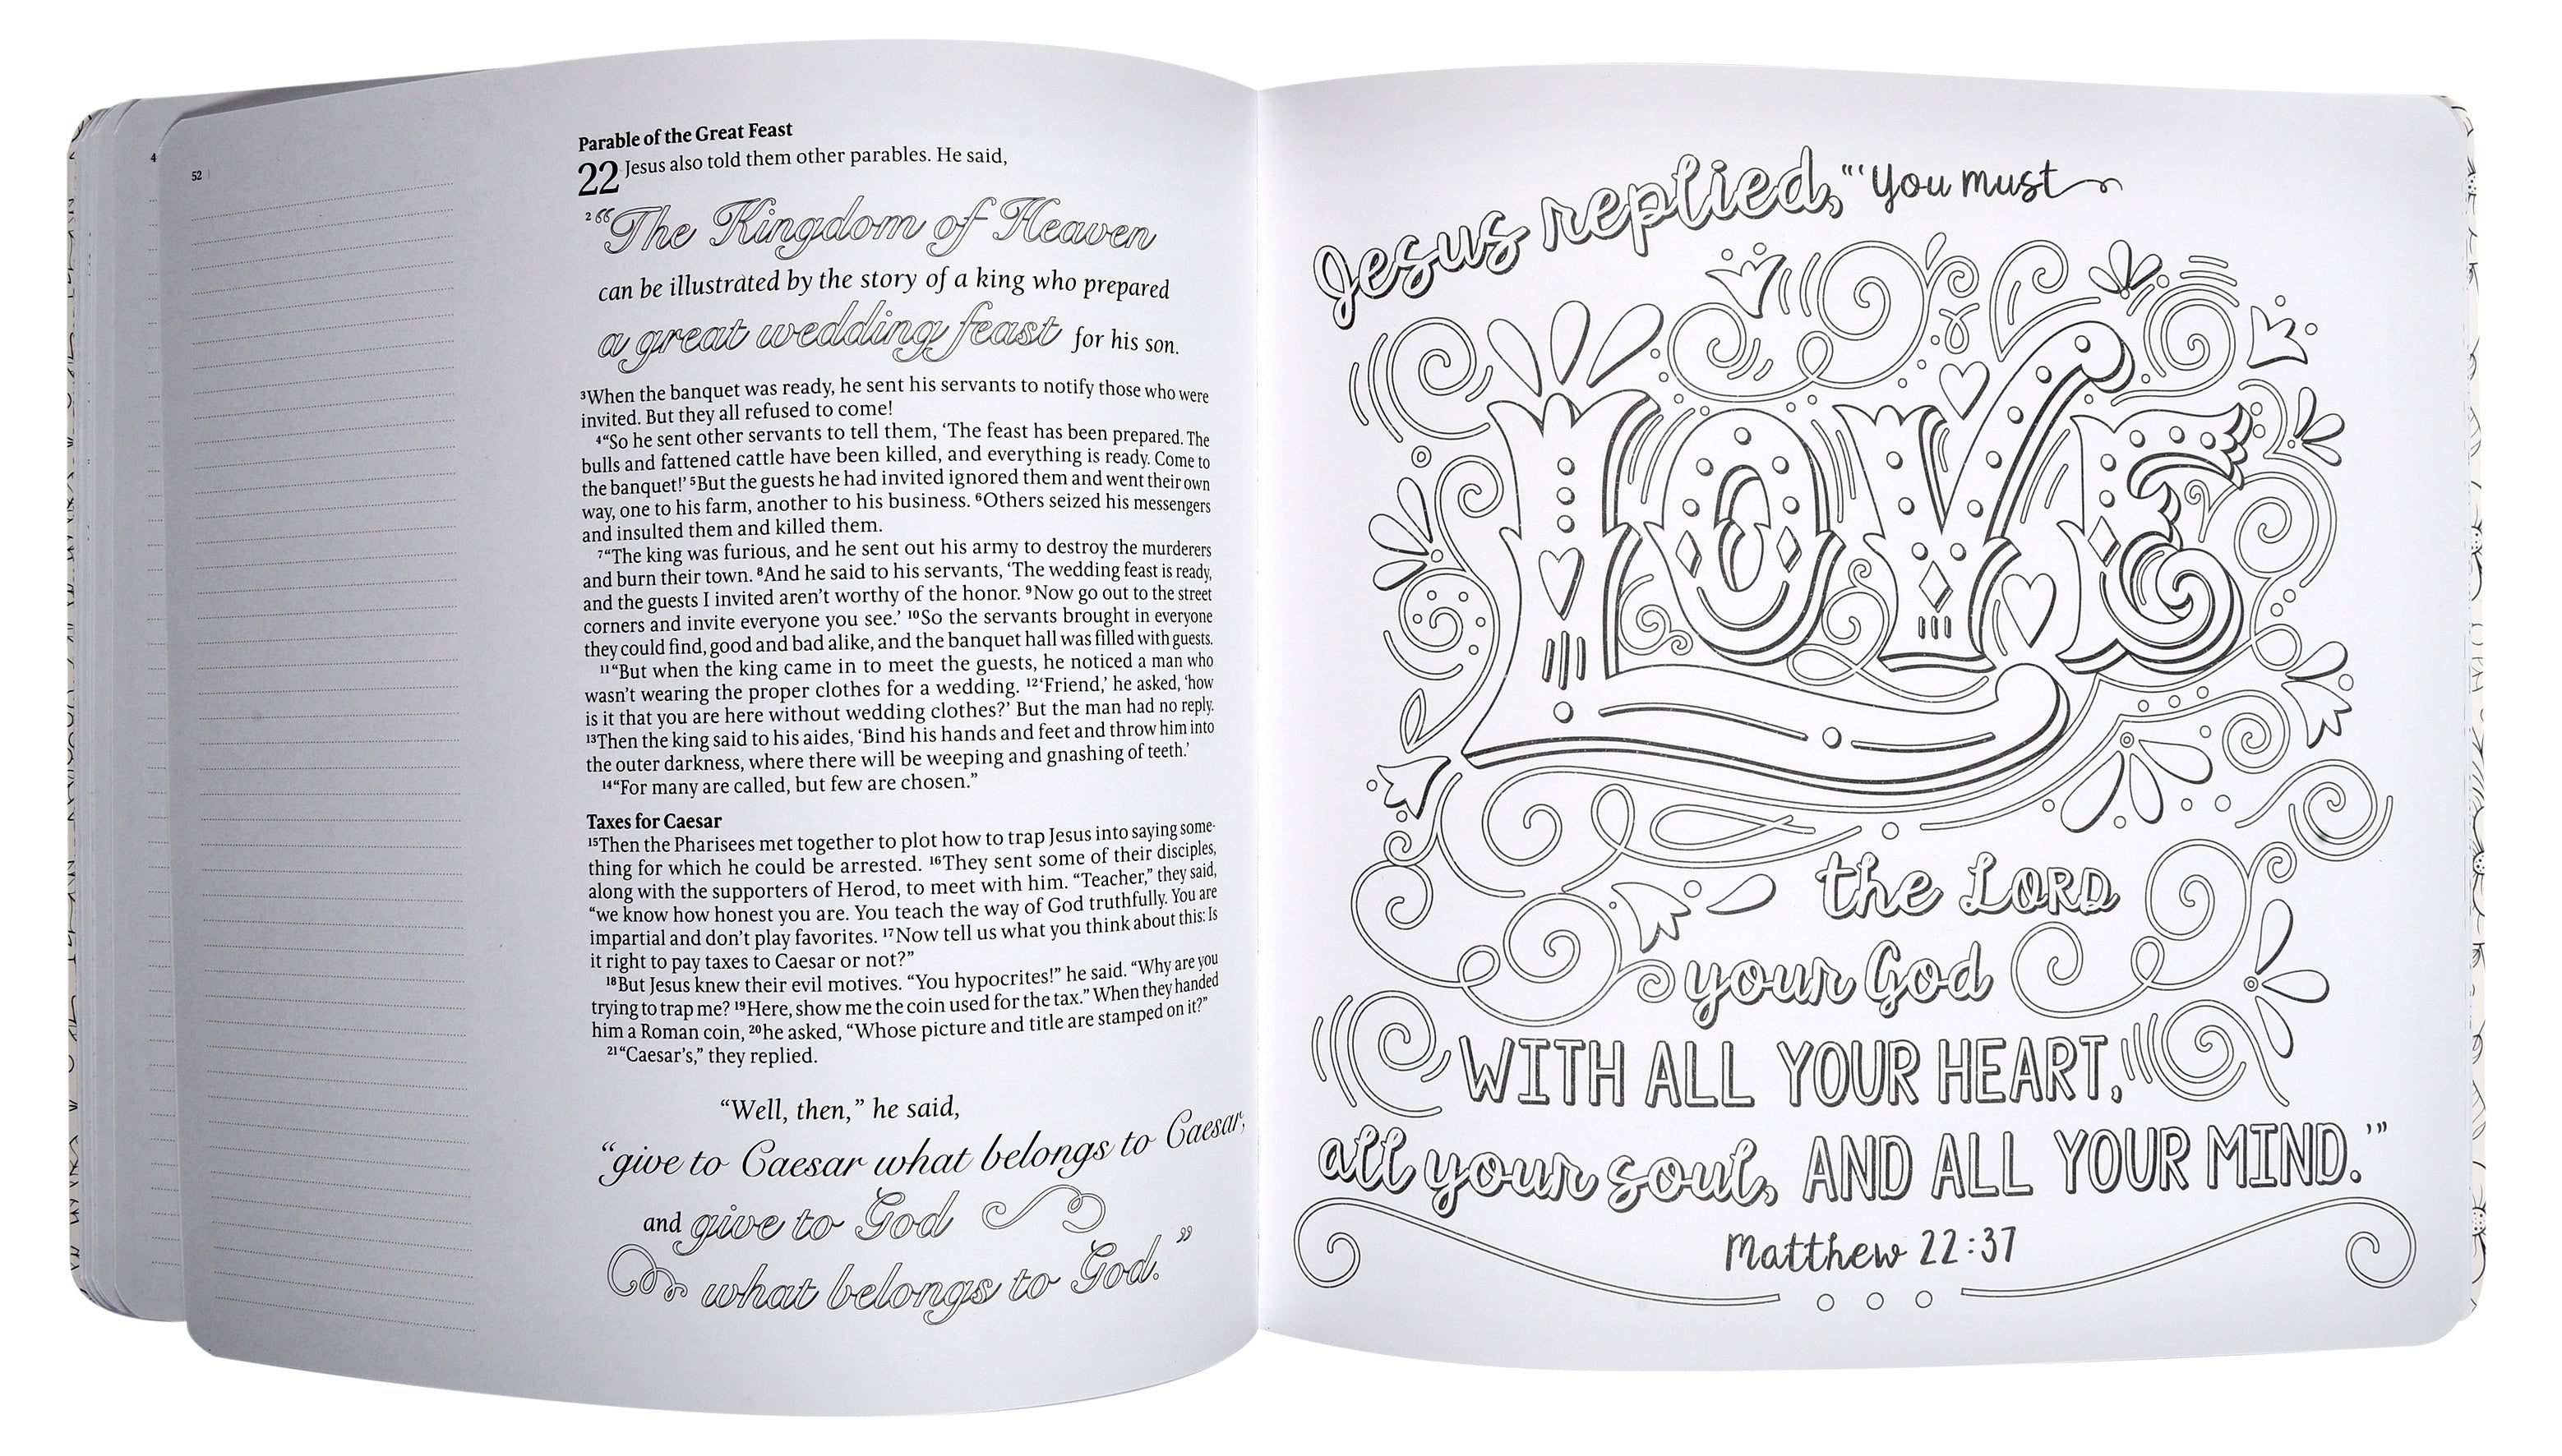 4
52
Parable of the Great Feast
22 Jesus also told them other parables. He said,
2 “The Kingdom of Heaven
can be illustrated by the story of a king who prepared
a great wedding feast for his son.
3When the banquet was ready, he sent his servants to notify those who were
invited. But they all refused to come!
4“So he sent other servants to tell them, ‘The feast has been prepared. The
bulls and fattened cattle have been killed, and everything is ready. Come to
the banquet!’ 5But the guests he had invited ignored them and went their own
way, one to his farm, another to his business. 6Others seized his messengers
and insulted them and killed them.
7“The king was furious, and he sent out his army to destroy the murderers
and burn their town. 8And he said to his servants, ‘The wedding feast is ready,
and the guests I invited aren’t worthy of the honor. 9Now go out to the street
corners and invite everyone you see.’ 10So the servants brought in everyone
they could find, good and bad alike, and the banquet hall was filled with guests.
11“But when the king came in to meet the guests, he noticed a man who
wasn’t wearing the proper clothes for a wedding. 12‘Friend,’ he asked, ‘how
is it that you are here without wedding clothes?’ But the man had no reply.
13Then the king said to his aides, ‘Bind his hands and feet and throw him into
the outer darkness, where there will be weeping and gnashing of teeth.’
14“For many are called, but few are chosen.”
Taxes for Caesar
15Then the Pharisees met together to plot how to trap Jesus into saying some-
thing for which he could be arrested. 16They sent some of their disciples,
along with the supporters of Herod, to meet with him. “Teacher,” they said,
“we know how honest you are. You teach the way of God truthfully. You are
impartial and don’t play favorites. 17Now tell us what you think about this: Is
it right to pay taxes to Caesar or not?”
18But Jesus knew their evil motives. “You hypocrites!” he said. “Why are you
trying to trap me? 19Here, show me the coin used for the tax.” When they handed
him a Roman coin, 20he asked, “Whose picture and title are stamped on it?”
21“Caesar’s,” they replied.
“Well, then,” he said,
“give to Caesar what belongs to Caesar,
and give to God
what belongs to God.”
Jesus replied, “‘You must
LOVE
the LORD
your God
WITH ALL YOUR HEART,
all your soul, AND ALL YOUR MIND.’”
Matthew 22:37